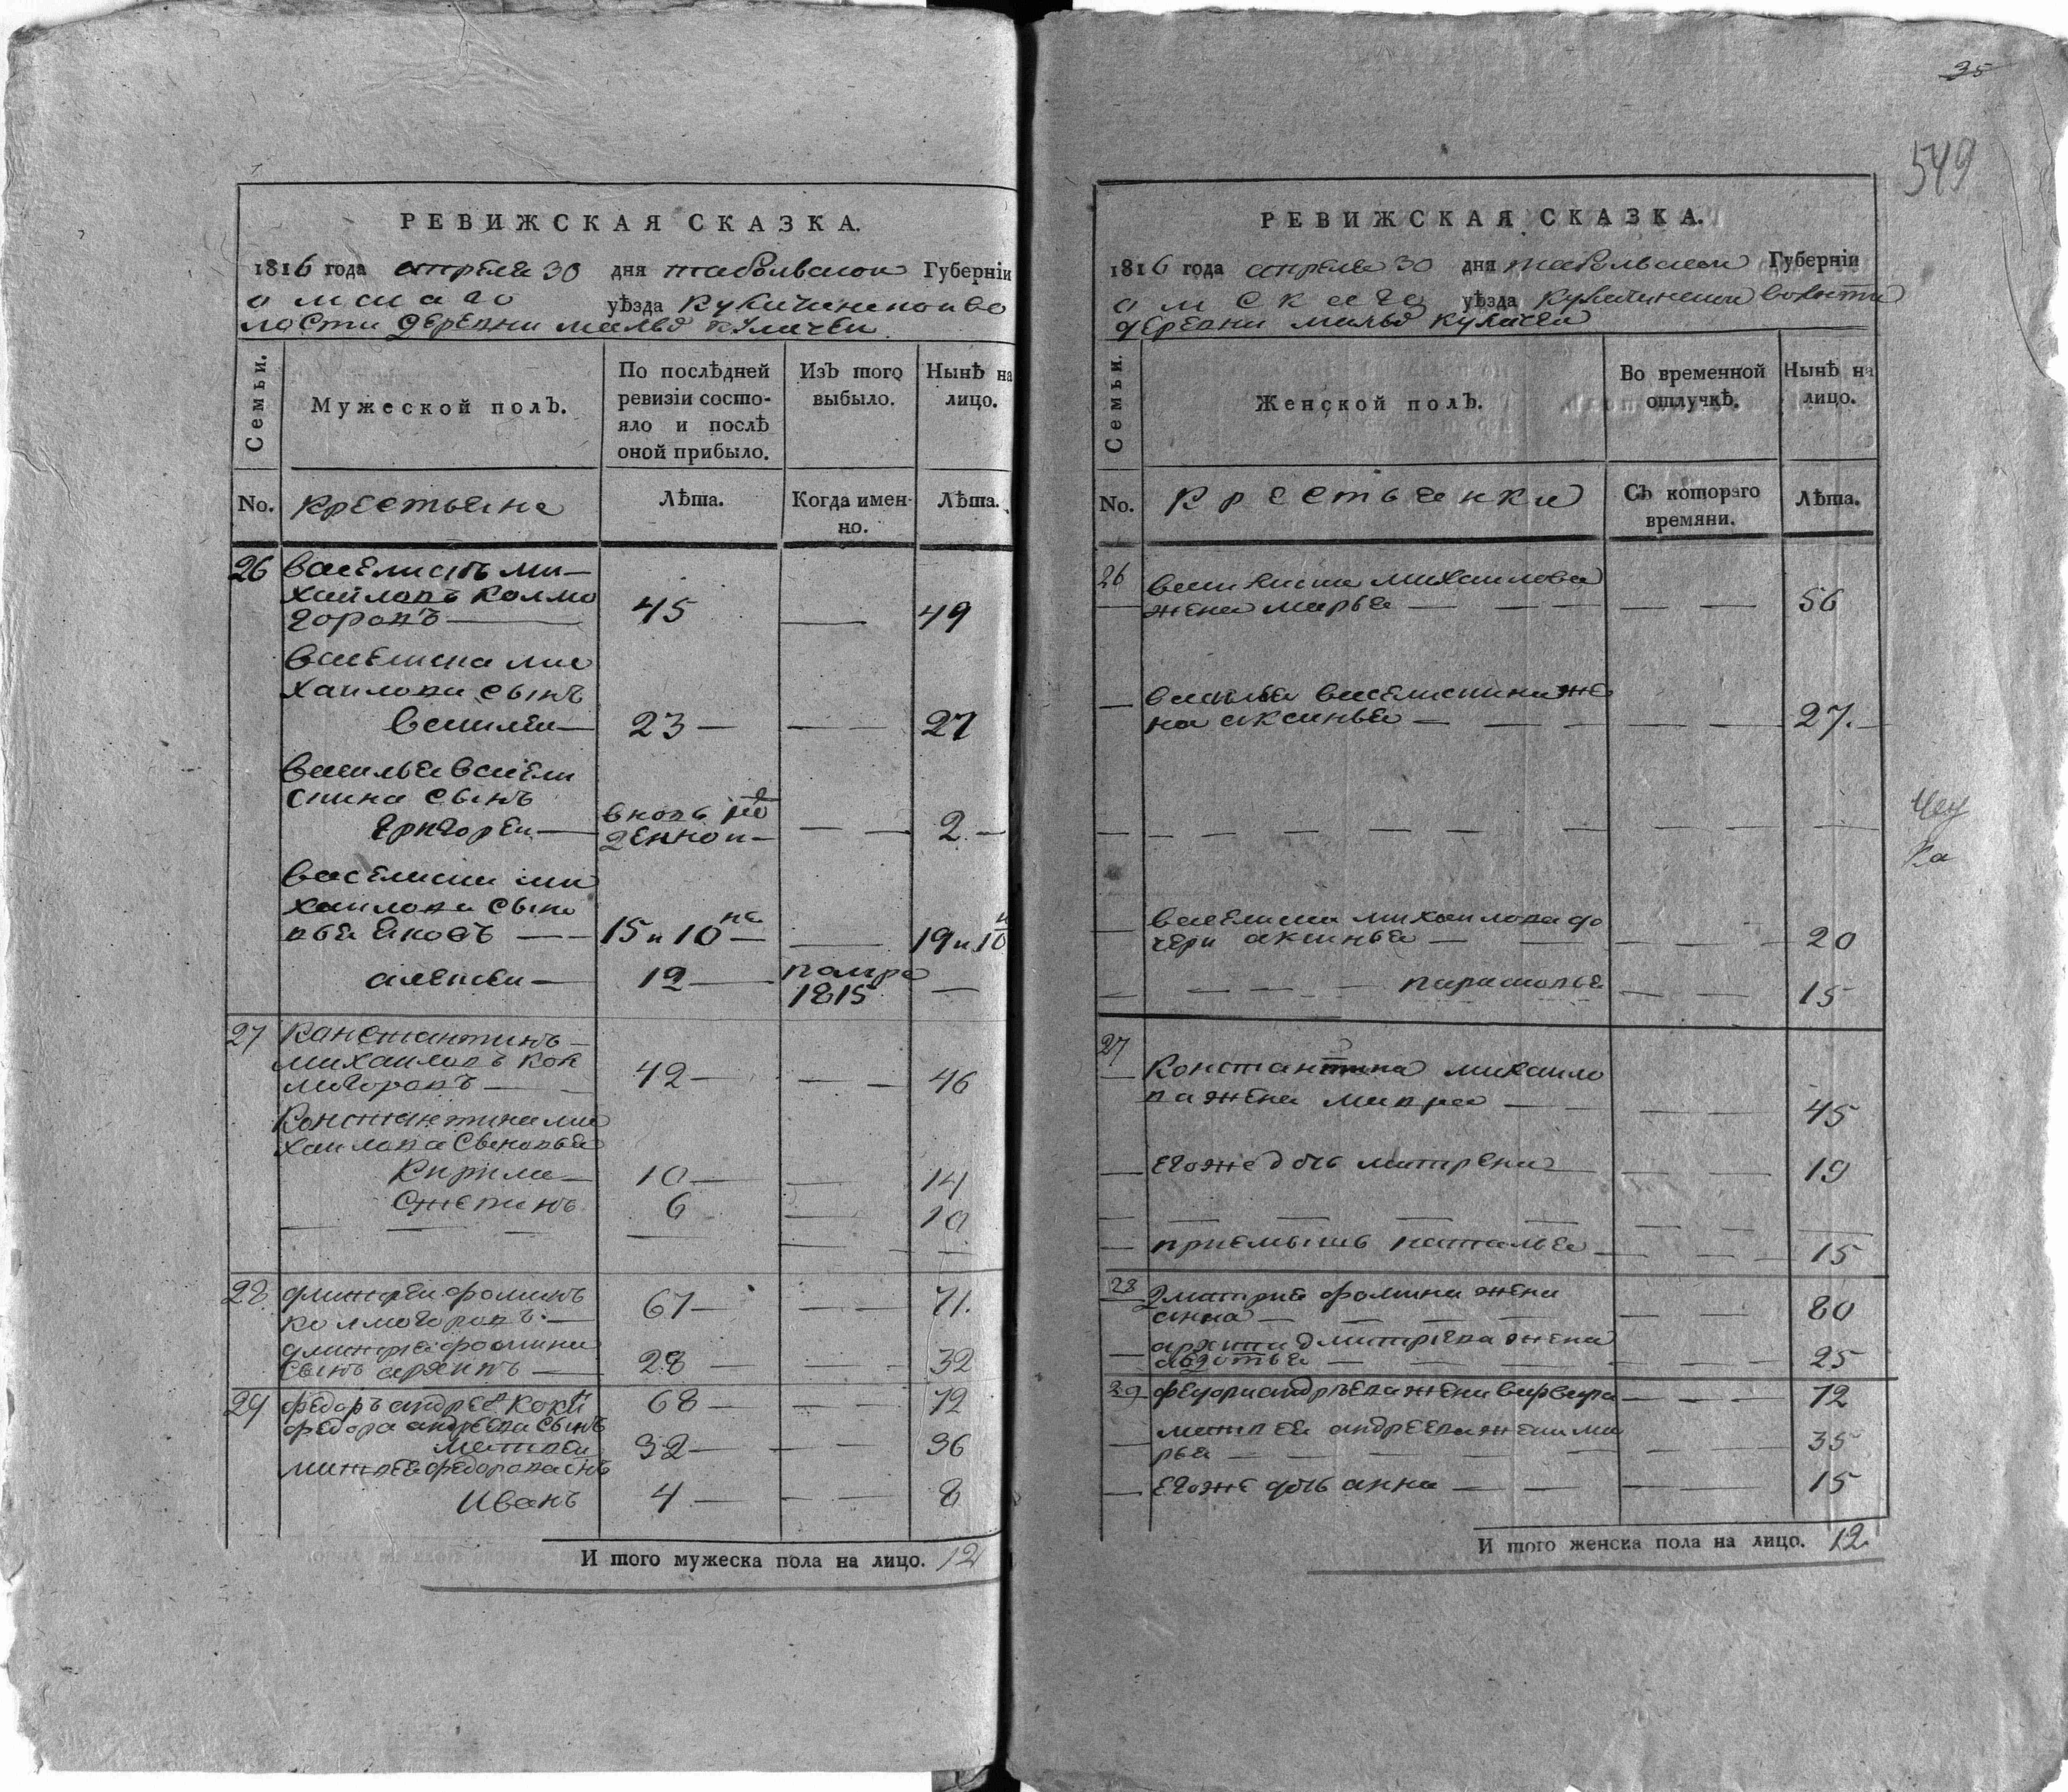 РЕВИЖСКАЯ СКАЗКА.
1816 года апреля 30 дня табольской Губерніи
омскаго уѣзда Кулачинскои во
лости деревни мало Кулачеи
Семьи.
Мужеской полъ.
По послѣдней ревизіи состо-
яло и послѣ
оной прибыло.
Изъ того
выбыло.
Нынѣ на
лицо.
No.
крестьяне
Лѣта.
Когда имен-
но.
Лѣта.
26 Василискъ ми-
хайловъ Колмо
горовъ 45 — 49
Василиска ми
хаилова сынъ
Василеи 23 — — 27
Василья Васили
скина сынъ
Григореи вновь ро
жденнои — — 2
Василиска ми
хаилова сыно
вья Яковъ 15 и 10 — 19 и 10
алексеи 12 помре
1815 —
27 Констянтинъ
михаиловъ Кол
могоровъ 42 — — 46
Константина ми
хаилова Сыновья
Кирила 10 — 14
6 — 10
28 дмитреи фоминъ
колмогоровъ 67 — — 71.
дмитрея фомина
сынъ архипъ 28 — — 32
29 федоръ андреев 68 — — 72
федора андреева сынъ
матвеи 32 — — 36
матвея федорова снъ
Иванъ 4 — — 8
И того мужеска пола на лицо. 12
35
549
РЕВИЖСКАЯ СКАЗКА.
1816 года апреля 30 дня табольскои Губерніи
омскаго уѣзда Кулачинскои волости
деревни мало кулачеи
Семьи.
Женской полъ.
Во временной
отлучкѣ.
Нынѣ на
лицо.
No.
Крестьянки
Съ котораго
времяни.
Лѣта.
26 Василиска михаилова
жена марья — — 56
василья василискина же
на аксинья — — 27.
Василиска михаилова до
чери аксинья — — 20
парасковья — — 15
27
Константина михаило
ва жена мавра — — 45
егоже дочь матрена — — 19
приемышъ наталья — — 15
28 дмитрия фомина жена
анна — — 80
архипа дмитрева жена
авдотья — — 25
29 федора андреева жена варвара — — 72
матвея андреева жена ма
рья — — 35
егоже дочь анна — — 15
И того женска пола на лицо. 12